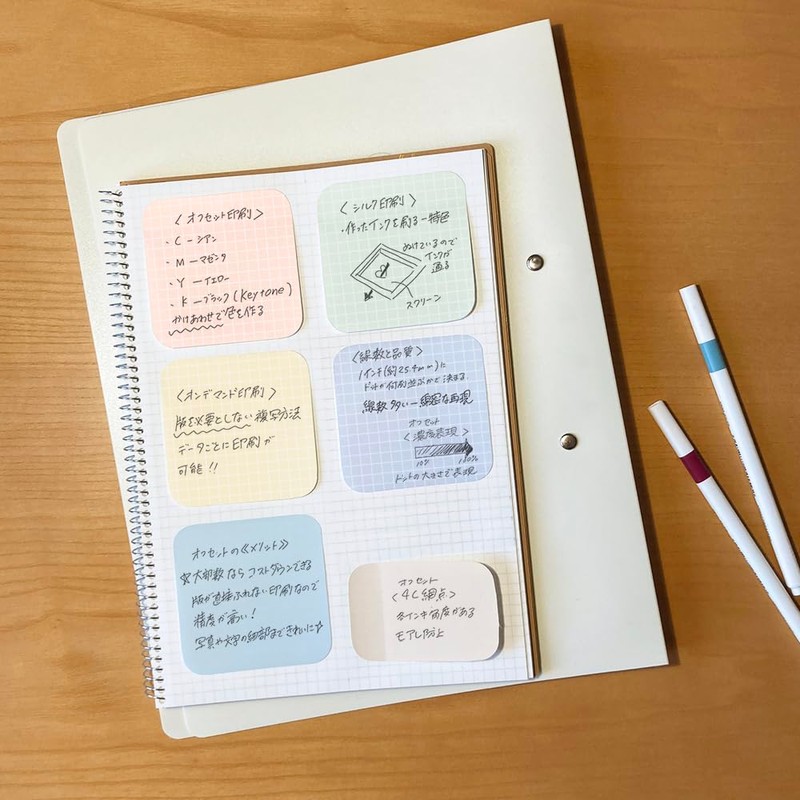 〈オフセット印刷〉
・C ー シアン
・M ー マゼンタ
・Y ー イエロー
・K ー ブラック(Keytone)
かけあわせで色を作る
〈シルク印刷〉
・作ったインクを刷る ー 特色
ぬけているので
インクが
通る
スクリーン
〈オンデマンド印刷〉
版を必要としない複写方法
データごとに印刷が
可能!!
〈線数と品質〉
1インチ(約25.4mm)に
ドットが何列並ぶかで決まる
線数多い ー 綿密な再現
オフセット
〈濃度表現〉
10% 100%
ドットの大きさで表現
オフセットの《メリット》
☆大部数ならコストダウンできる
版が直接ふれない印刷なので
精度が高い!
写真や文字の細部まできれいに☆
オフセット
〈4C網点〉
各インキ角度がある
モアレ防止